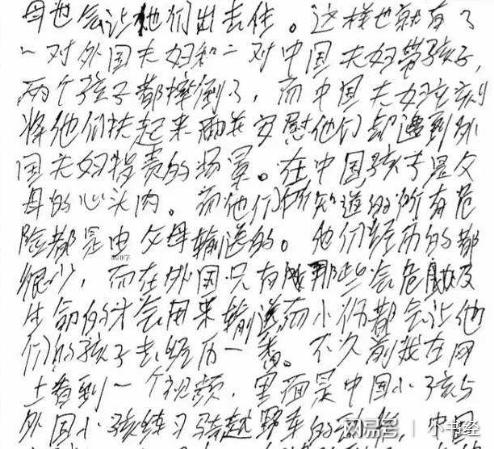 母也会让他们出去住。这样也就有了
一对外国夫妇和一对中国夫妇带孩子,
两个孩子都摔倒了,而中国夫妇立刻
将他们扶起来并安慰他们却遭到外
国夫妇指责的场景。在中国孩子是父
母的心头肉。而他们所知道的所有危
险都是由父母输送的。他们经历的都
很少,而在外国只有那些会危及
生命的才会用来输送而小伤都会让他
们的孩子去经历一番。不久前我在网
上看到一个视频,里面是中国小孩与
外国小孩练习骑越野车的,中国
网易号 | 书经